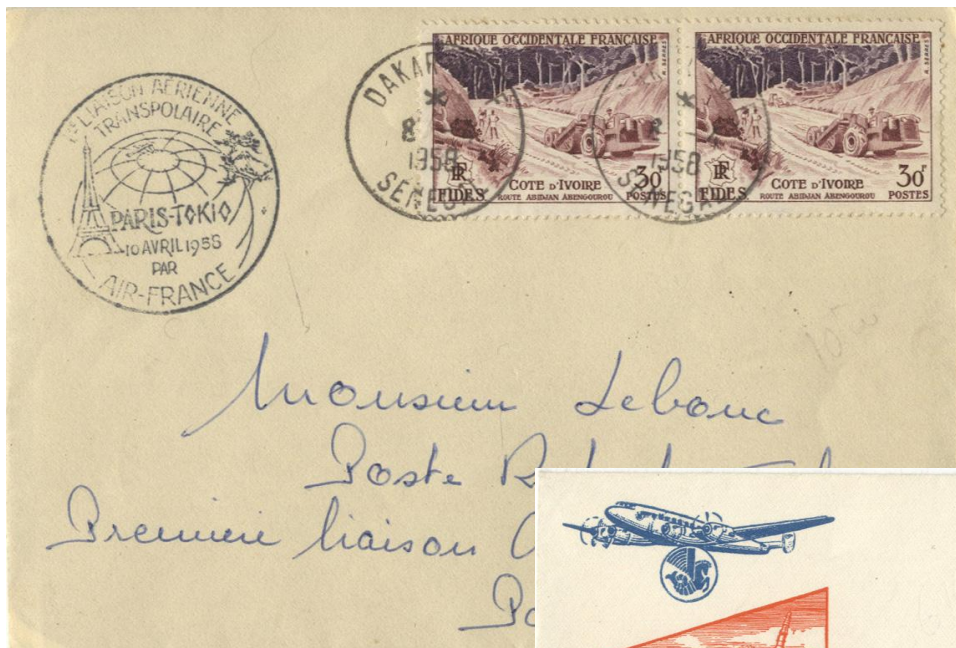 1e LIAISON AÉRIENNE
TRANSPOLAIRE
PARIS-TOKIO
10 AVRIL 1958
PAR
AIR-FRANCE
DAKAR
8
1958
SENEG
AFRIQUE OCCIDENTALE FRANÇAISE
R. SERRES
RF
FIDES
COTE D'IVOIRE
ROUTE ABIDJAN ABENGOUROU
30F
POSTES
1958
AFRIQUE OCCIDENTALE FRANÇAISE
R. SERRES
RF
FIDES
COTE D'IVOIRE
ROUTE ABIDJAN ABENGOUROU
30F
POSTES
Monsieur Lebouc
Poste
Première liaison